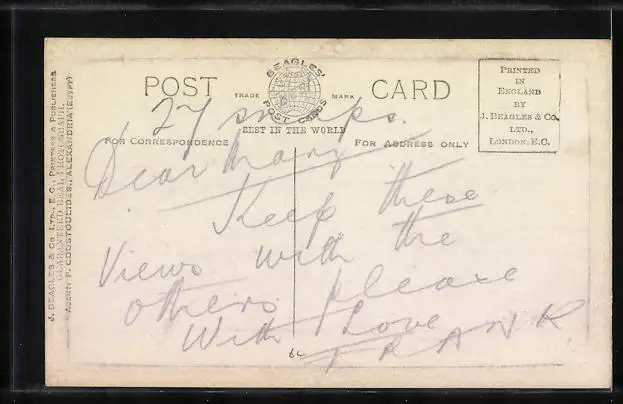 J. BEAGLES & Co. LTD., E.C., PRINTERS & PUBLISHERS
GUARANTEED REAL PHOTOGRAPH.
AGENT: P. COUSTOULIDES, ALEXANDRIA (EGYPT)
BEAGLES'
POST CARDS
POST
TRADE
MARK
CARD
BEST IN THE WORLD
FOR CORRESPONDENCE
FOR ADDRESS ONLY
PRINTED
IN
ENGLAND
BY
J. BEAGLES & Co.
LTD.,
LONDON, E.C.
27 snaps.
Dear Mary
Keep these
Views with the
others please
With Love
FRANK